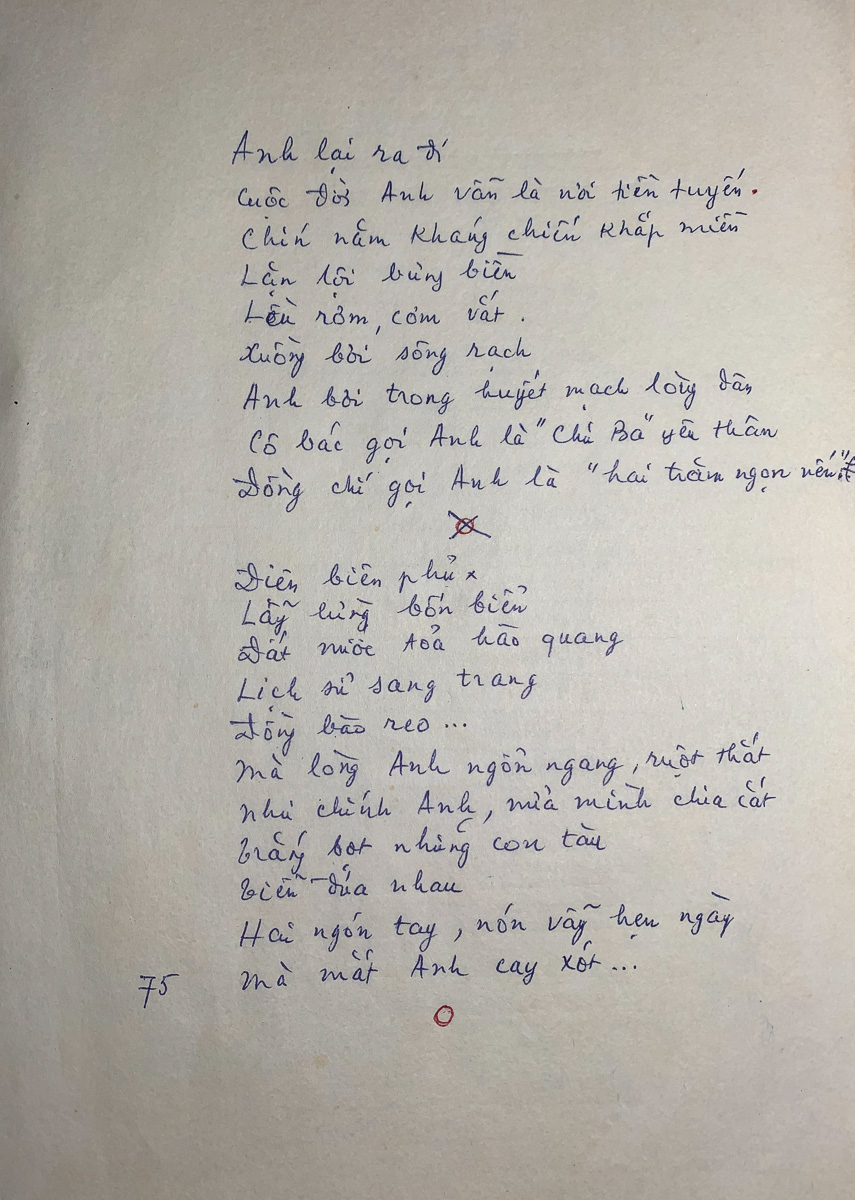 Anh lại ra đi
Cuộc đời Anh vẫn là nơi tiền tuyến.
Chín năm kháng chiến khắp miền
Lặn lội bưng biền
Lều rơm, cơm vắt.
Xuồng bơi sông rạch
Anh bơi trong huyết mạch lòng dân
Cô bác gọi Anh là "Chú Ba" yêu thân
Đồng chí gọi Anh là "hai trăm ngọn nến"
Điện biên phủ x
Lẫy lừng bốn biển
Đất nước toả hào quang
Lịch sử sang trang
Đồng bào reo ...
Mà lòng Anh ngổn ngang, ruột thắt
như chính Anh, mìn mình chia cắt
Trắng bọt những con tàu
Tiễn đưa nhau
Hai ngón tay, nón vẫy hẹn ngày
Mà mắt Anh cay xót ...
75